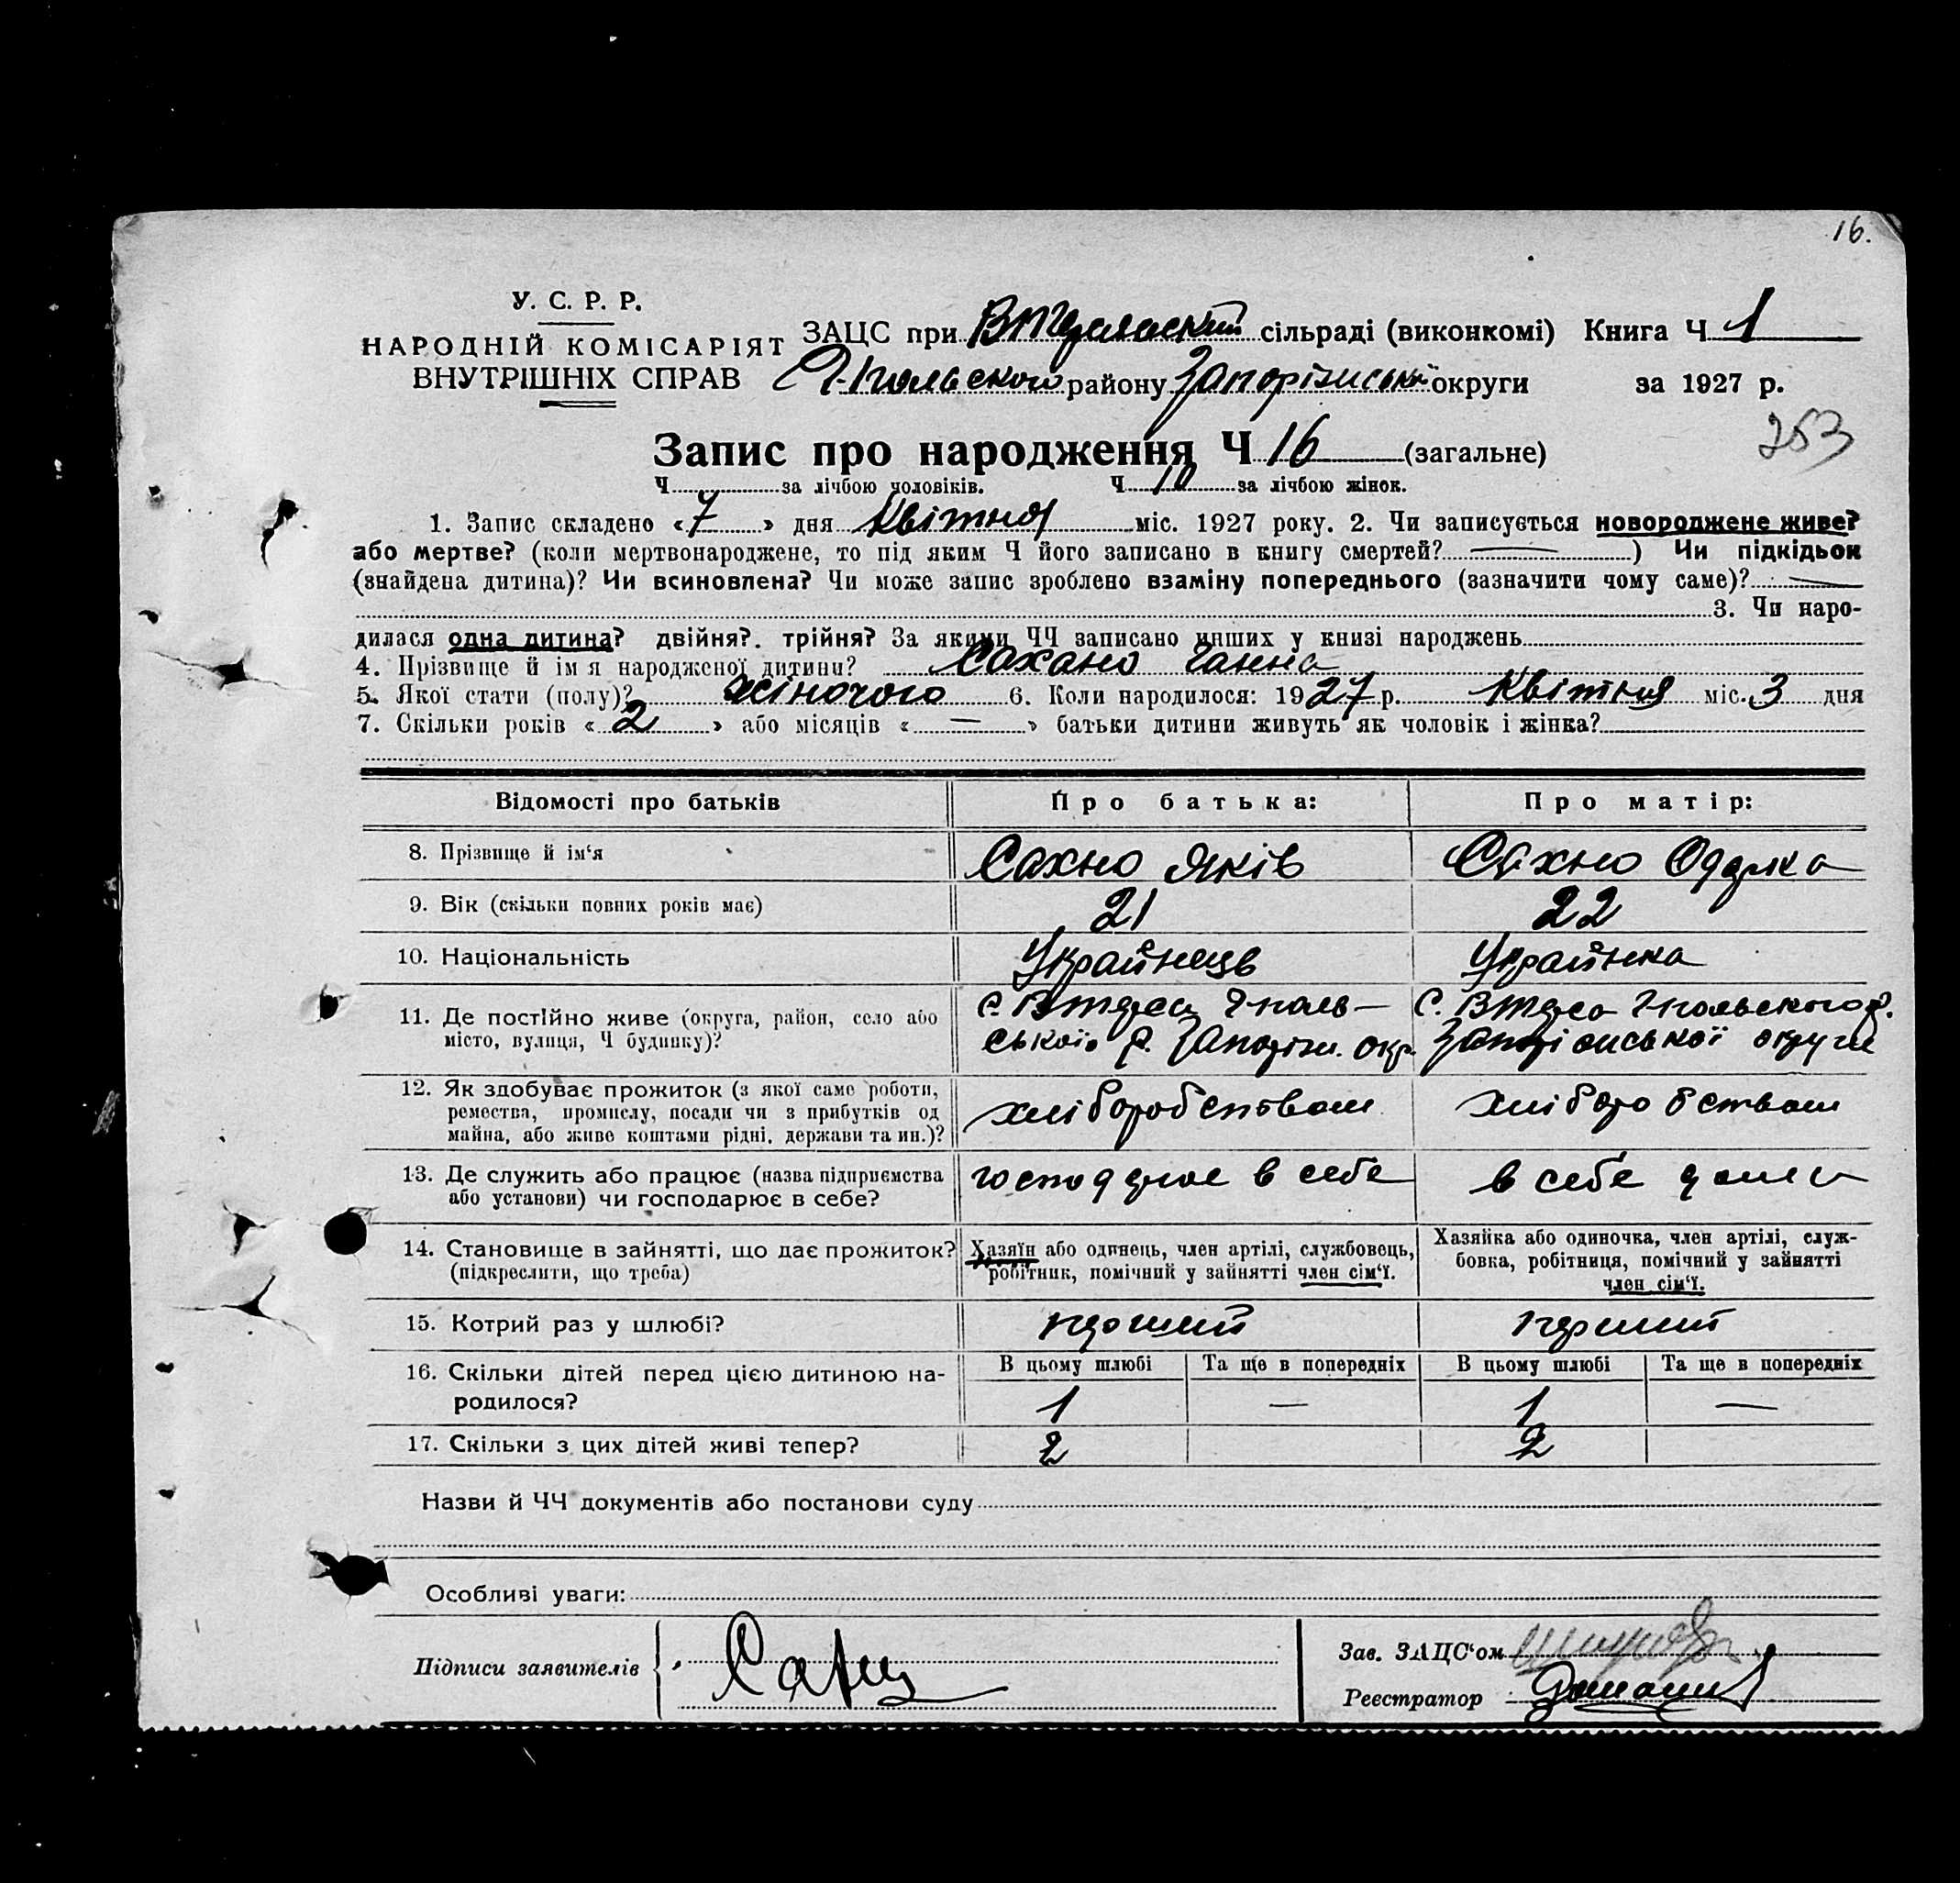 16.
У. С. Р. Р.
НАРОДНІЙ КОМІСАРІЯТ
ВНУТРІШНІХ СПРАВ
ЗАЦС при сільраді (виконкомі) Книга Ч 1
району Запорізької округи за 1927 р.
253
Запис про народження Ч 16 (загальне)
Ч за лічбою чоловіків. Ч 10 за лічбою жінок.
1. Запис складено «7» дня Квітня міс. 1927 року. 2. Чи записується новороджене живе?
або мертве? (коли мертвонароджене, то під яким Ч його записано в книгу смертей? —) Чи підкідьок
(знайдена дитина)? Чи всиновлена? Чи може запис зроблено взаміну попереднього (зазначити чому саме)? —
3. Чи наро-
дилася одна дитина? двійня?. трійня? За якими ЧЧ записано инших у книзі народжень
4. Прізвище й імя народженої дитини? Сахано Ганна
5. Якої стати (полу)? жіночого 6. Коли народилося: 1927 р. Квітня міс. 3 дня
7. Скільки років «2» або місяців «—» батьки дитини живуть як чоловік і жінка?
Відомості про батьків Про батька: Про матір:
8. Прізвище й ім‘я Сахно Яків Сахно
9. Вік (скільки повних років має) 21 22
10. Національність Українець Українка
11. Де постійно живе (округа, район, село або
місто, вулиця, Ч будинку)?
12. Як здобуває прожиток (з якої саме роботи,
ремества, промислу, посади чи з прибутків од
майна, або живе коштами рідні, держави та ин.)?
хліборобством хліборобством
13. Де служить або працює (назва підприємства
або установи) чи господарює в себе?
господарює в себе в себе дома
14. Становище в зайнятті, що дає прожиток?
(підкреслити, що треба)
Хазяїн або одинець, член артілі, службовець,
робітник, помічний у зайнятті член сім‘ї.
Хазяйка або одиночка, член артілі, служ-
бовка, робітниця, помічний у зайнятті
член сім‘ї.
15. Котрий раз у шлюбі? перший перший
16. Скільки дітей перед цією дитиною на-
родилося?
В цьому шлюбі Та ще в попередніх В цьому шлюбі Та ще в попередніх
1 — 1 —
17. Скільки з цих дітей живі тепер? 2 2
Назви й ЧЧ документів або постанови суду
Особливі уваги:
Підписи заявителів
Зав. ЗАЦС‘ом
Реєстратор